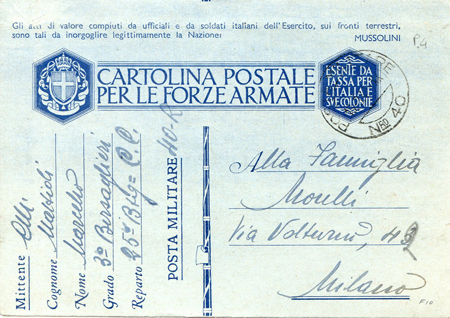 Gli atti di valore compiuti da ufficiali e da soldati italiani dell'Esercito, sui fronti terrestri,
sono tali da inorgoglire legittimamente la Nazione!
MUSSOLINI
P.4
CARTOLINA POSTALE
PER LE FORZE ARMATE
ESENTE DA
TASSA PER
L'ITALIA E
SVE COLONIE
Nro 40
Mittente
Cognome Mattioli
Nome Marcello
Grado 3º Bersaglieri
Reparto 25º Btg= C.C.
POSTA MILITARE 40-R
Alla Famiglia
Morelli
Via Volturno, 43
Milano
F10